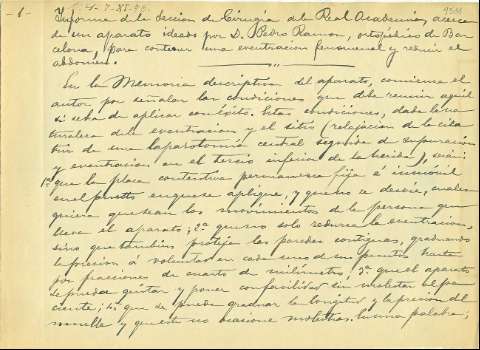 -1-
Informe de la Seccion de Cirugia a la Real Academia, acerca
de un aparato ideado por D. Pedro Ramon, ortopédico de Bar
celona, para contener una eventracion fenomenal y reducir el
abdomen.
En la Memoria descriptiva del aparato, comienza el
autor por señalar las condiciones que debe reunir aquél
si se ha de aplicar con éxito. Estas condiciones, dada la na
turaleza de la eventracion y el sitio (relajacion de la cica
triz de una laparotomia central seguida de supuracion
y eventracion en el tercio inferior de la herida), serán:
1ª que la placa contentiva permanezca fija é inmovil
en el punto en que se aplique, y que no se desvie, cuales
quiera que sean los movimientos de la persona que
lleve el aparato; 2ª que no solo reduzca la eventracion,
sino que tambien proteja las paredes contiguas, graduando
la presion á voluntad en cada uno de sus puntos hasta
por fracciones de cuarto de milimetro; 3ª que el aparato
se pueda quitar y poner con facilidad sin molestar al pa
ciente; 4ª que se pueda graduar la longitud y la presion del
muelle y que este no ocasione molestias. En una palabra;